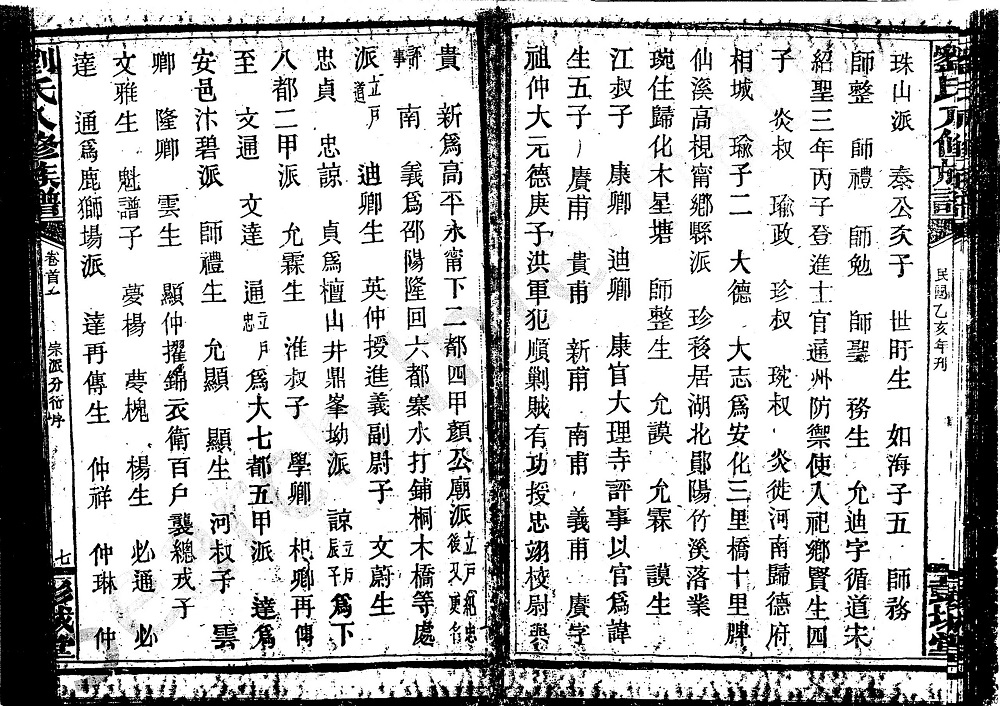 珠山派 泰公次子 世盱生 如海子五 師務
師整 師禮 師勉 師聖 務生 允迪字循道宋
紹聖三年丙子登進士官通州防禦使入祀鄉賢生四
子 炎叔 瑜政 珍叔 琬叔 炎徙河南歸德府
相城 瑜子二 大德 大志爲安化三里橋十里牌
仙溪高梘甯鄉縣派 珍移居湖北鄖陽竹溪落業
琬住歸化木星塘 師整生 允謨 允霖 謨生
江叔子 康卿 迪卿 康官大理寺評事以官爲諱
生五子 賡甫 貴甫 新甫 南甫 義甫 賡字
祖仲大元德庚子洪軍犯順剿賊有功授忠翊校尉與
民國乙亥年刊
貴 新爲高平永甯下二都四甲顏公廟派立戶紹忠後又更名
評事 南 義爲邵陽隆回六都寨水打鋪桐木橋等處
派立戶道 迪卿生 英仲授進義副尉子 文蔚生
忠貞 忠諒 貞爲檀山井鼎峯坳派 諒立戶辰子爲下
八都二甲派 允霖生 淮叔子 學卿 杞卿再傳
至 文通 文達 通立戶忠爲大七都五甲派 達爲
安邑汴碧派 師禮生 允顯 顯生 河叔子 雲
卿 隆卿 雲生 顯仲擢錦衣衛百戶襲總戎子
文雅生 魁譜子 夢楊 夢槐 楊生 必通 必
達 通爲鹿獅場派 達再傳生 仲祥 仲琳 仲
劉氏八修族譜
卷首上
宗派分衍序
七
彭城堂